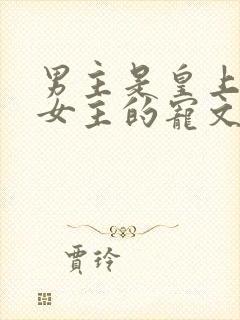 男主是皇上
女主的寵文
賈玲